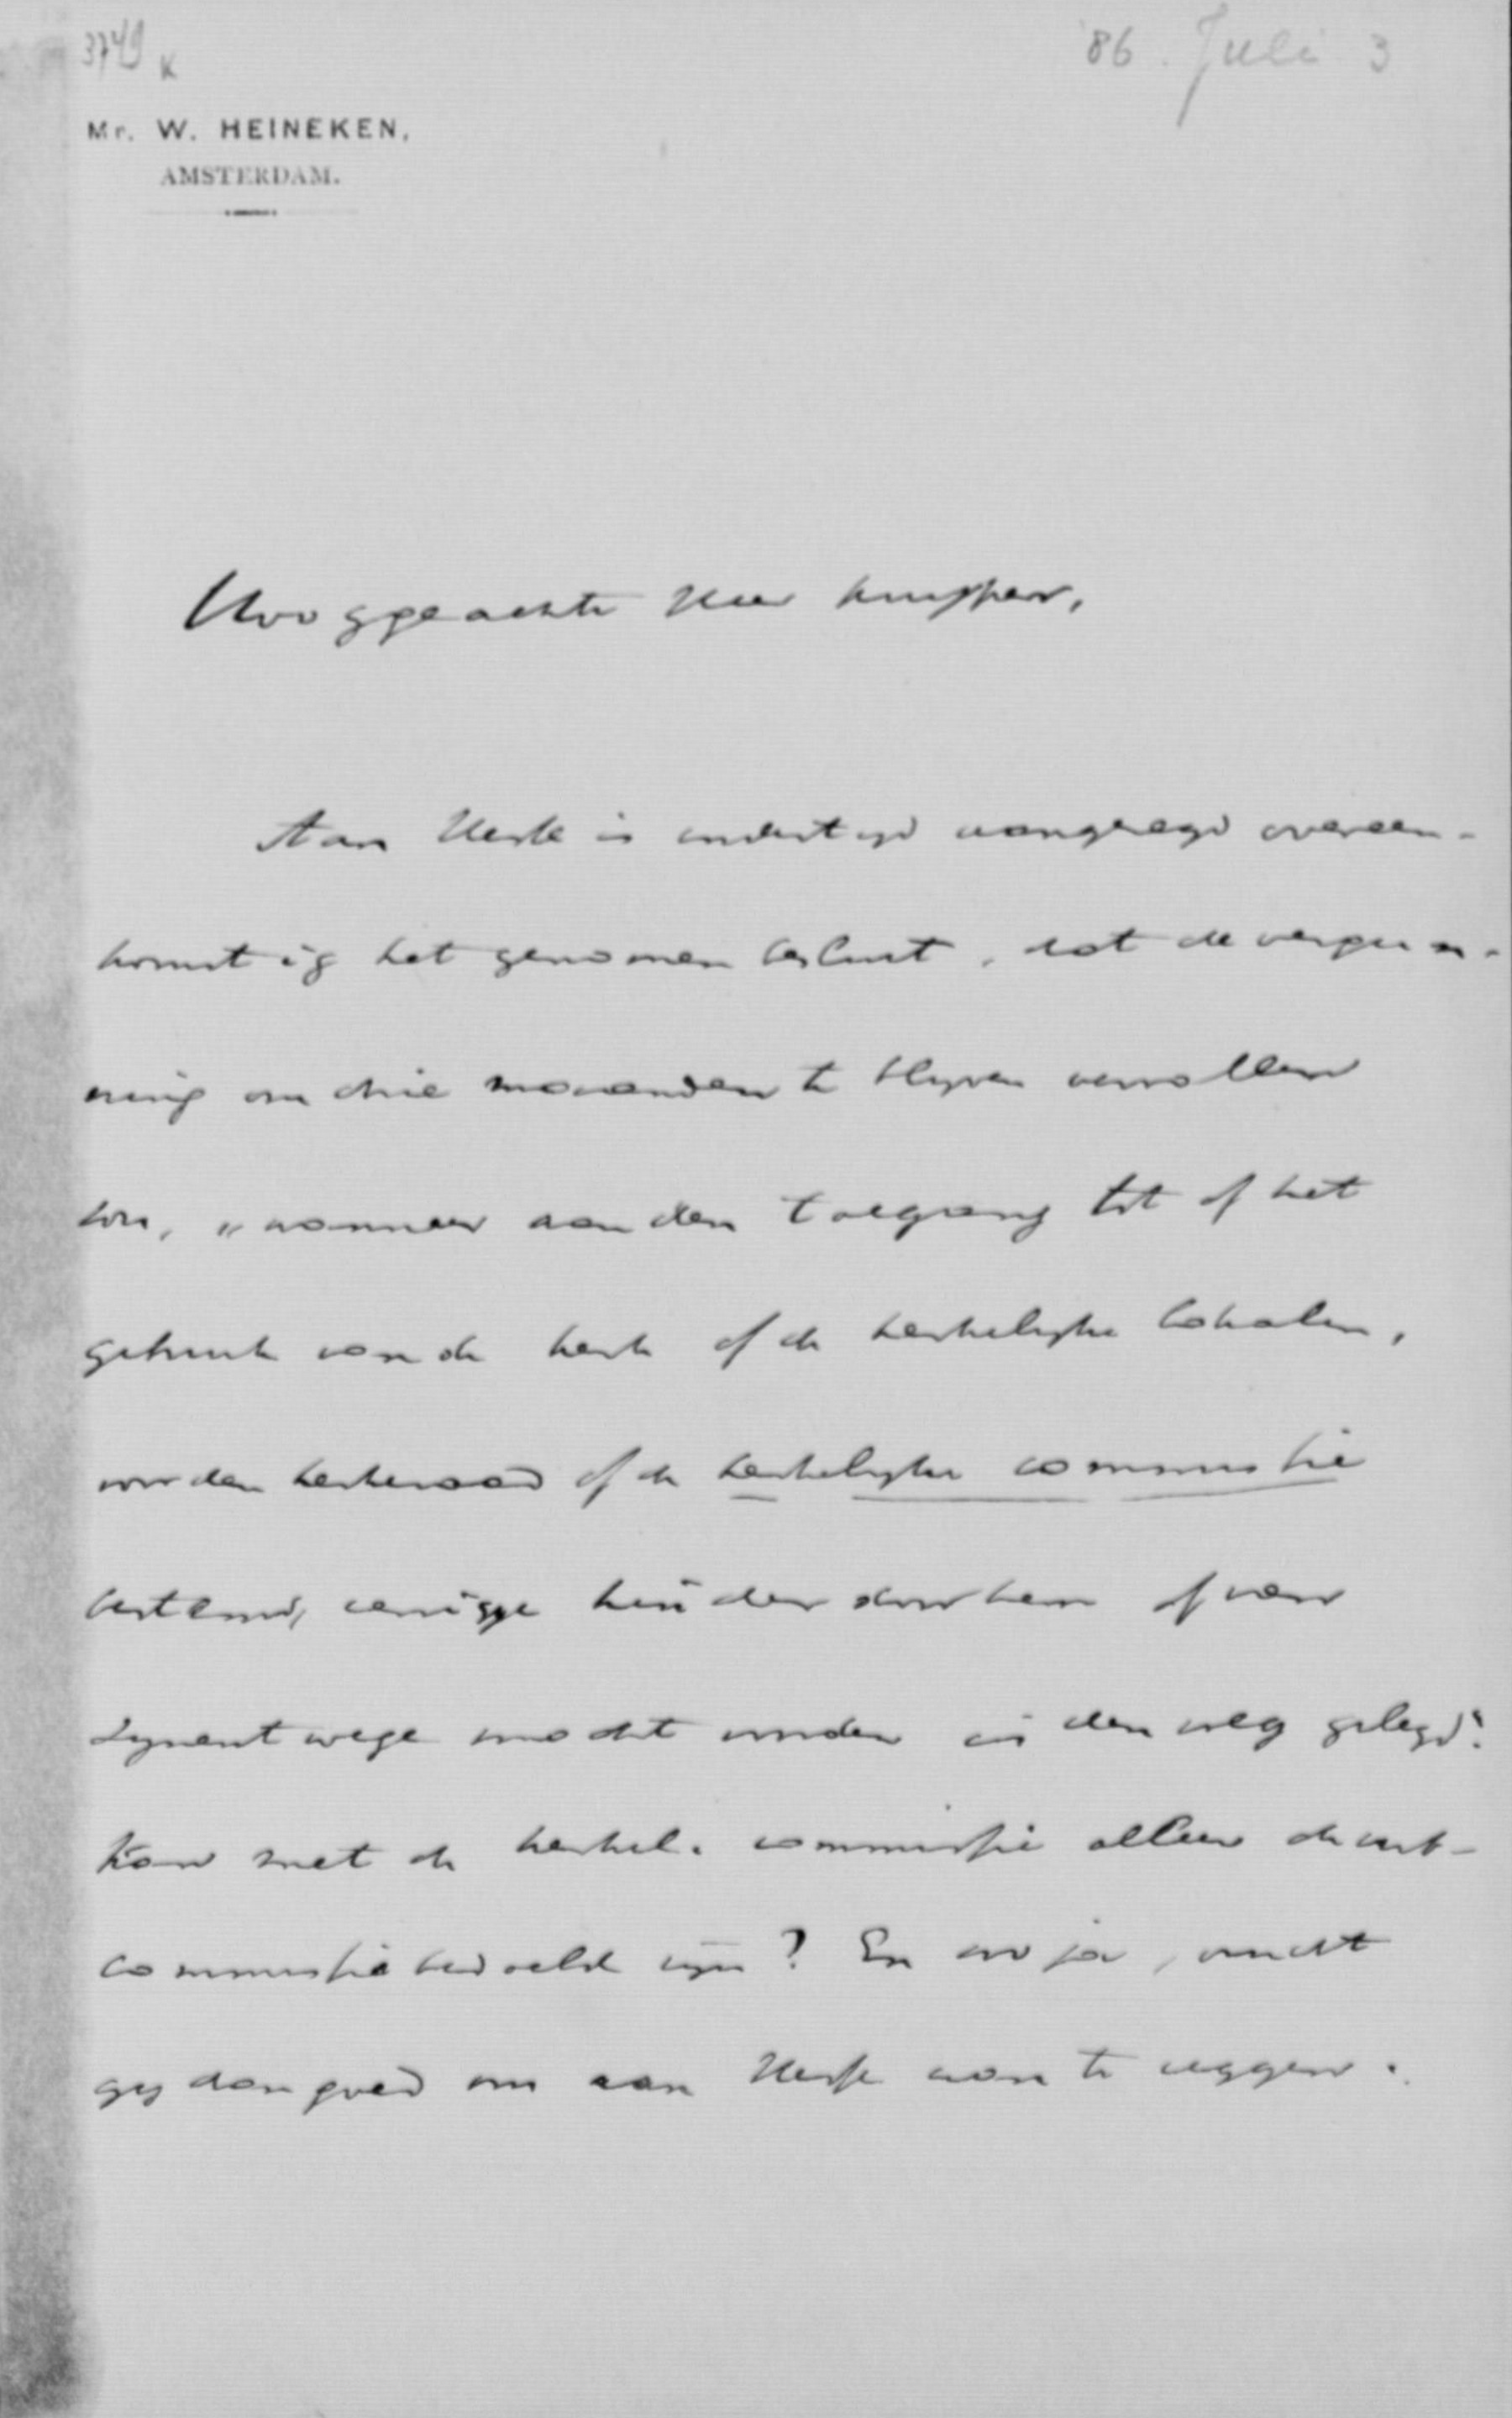 3749 K
'86. Juli 3
Mr. W. HEINEKEN,
AMSTERDAM.
Hooggeachte Heer Kuyper,
Aan is indertijd aangezegd overeen-
komstig het genomen besluit, dat de vergun-
ning om drie maanden te blijven vervallen
zou, „wanneer aan den toegang tot of het
gebruik van de kerk of de kerkelijke lokalen,
voor den kerkeraad of de kerkelijke commissie
bestemd, eenige hinder door hem of van
zijnent wege mocht worden in den weg gelegd".
Kan met de kerkel. commissie alleen de
commissie bedoeld zijn? En zoo ja, vindt
gij dan goed om aan aan te zeggen.